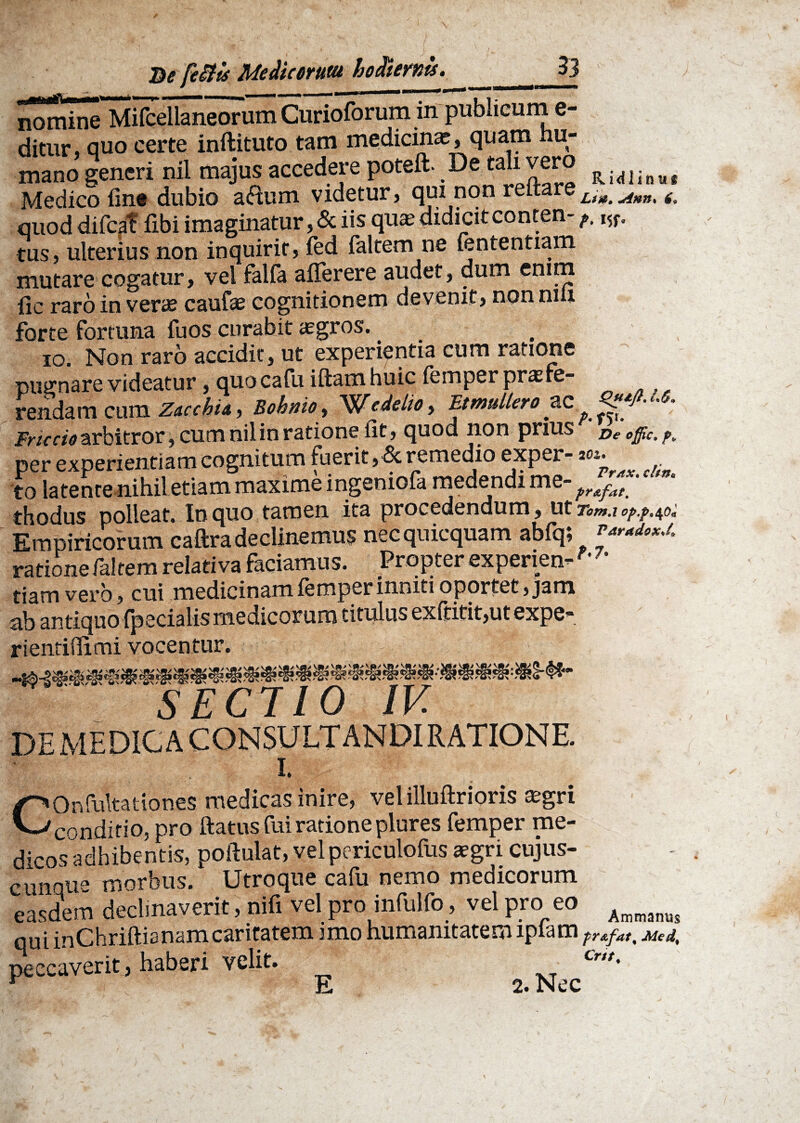 De sectis Medicorum hodiernis. 33
nomine Miscellaneorum Curiosorum in publicum e-
ditur, quo certe instituto tam medicinæ, quam hu-
mano generi nil majus accedere potest. De tali vero
Medico sine dubio actum videtur, qui non restare
quod discat sibi imaginatur, & iis quæ didicit conten-
tus, ulterius non inquirit, sed saltem ne sententiam
mutare cogatur, vel falsa asserere audet, dum enim
sic raro in veræ causæ cognitionem devenit, non nisi
forte fortuna suos curabit ægros.
Ridlinus
Lin. Ann. 6.
p. 155.
10. Non raro accidit, ut experientia cum ratione
pugnare videatur, quo casu istam huic semper præfe-
rendam cum Zacchia, Bohnio, Wedelio, Etmullero ac
Friccio arbitror, cum nil in ratione sit, quod non prius
per experientiam cognitum fuerit, & remedio exper-
to latente nihil etiam maxime ingeniosa medendi me-
thodus polleat. In quo tamen ita procedendum, ut
Empiricorum castra declinemus nec quicquam absq;
ratione saltem relativa faciamus. Propter experien-
tiam vero, cui medicinam semper inniti oportet, jam
ab antiquo specialis medicorum titulus exstitit, ut expe-
rientissimi vocentur.
Quæst. l.6.
p. 551.
De offic. p.
202.
Prax. clin.
præfat.
Tom.1 op.p.40.
Paradox.l.
p. 7.
SECTIO IV.
DE MEDICA CONSULTANDI RATIONE.
I.
COnsultationes medicas inire, vel illustrioris ægri
conditio, pro status sui ratione plures semper me-
dicos adhibentis, postulat, vel periculosus ægri cujus-
cunque morbus. Utroque casu nemo medicorum
easdem declinaverit, nisi vel pro insulso, vel pro eo
qui in Christianam caritatem imo humanitatem ipsam
peccaverit, haberi velit.
Ammanus
præfat. Med.
Crit.
E 2. Nec